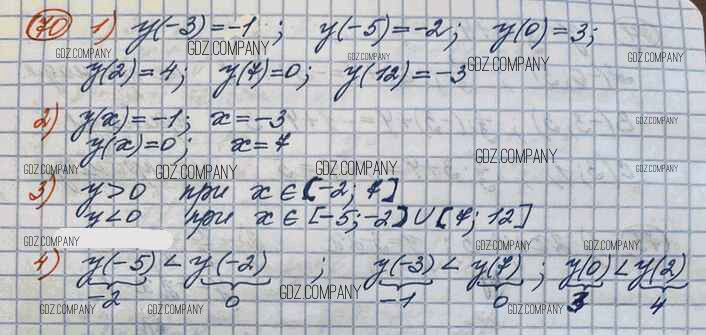 70 1) y(-3)=-1; y(-5)=-2; y(0)=3;
GDZ.COMPANY GDZ.COMPANY GDZ.COMPANY GDZ.COMPANY GDZ.COMPANY
y(2)=4; y(7)=0; y(12)=-3
2) y(x)=-1; x=-3
GDZ.COMPANY
y(x)=0; x=7
GDZ.COMPANY GDZ.COMPANY GDZ.COMPANY GDZ.COMPANY GDZ.COMPANY
3) y>0 при x∈[-2; 7]
y<0 при x∈[-5;-2]∪[7; 12]
GDZ.COMPANY GDZ.COMPANY GDZ.COMPANY GDZ.COMPANY
4) y(-5)<y(-2); y(-3)<y(7); y(0)<y(2)
-2 0 -1 0 3 4
GDZ.COMPANY GDZ.COMPANY GDZ.COMPANY GDZ.COMPANY GDZ.COMPANY